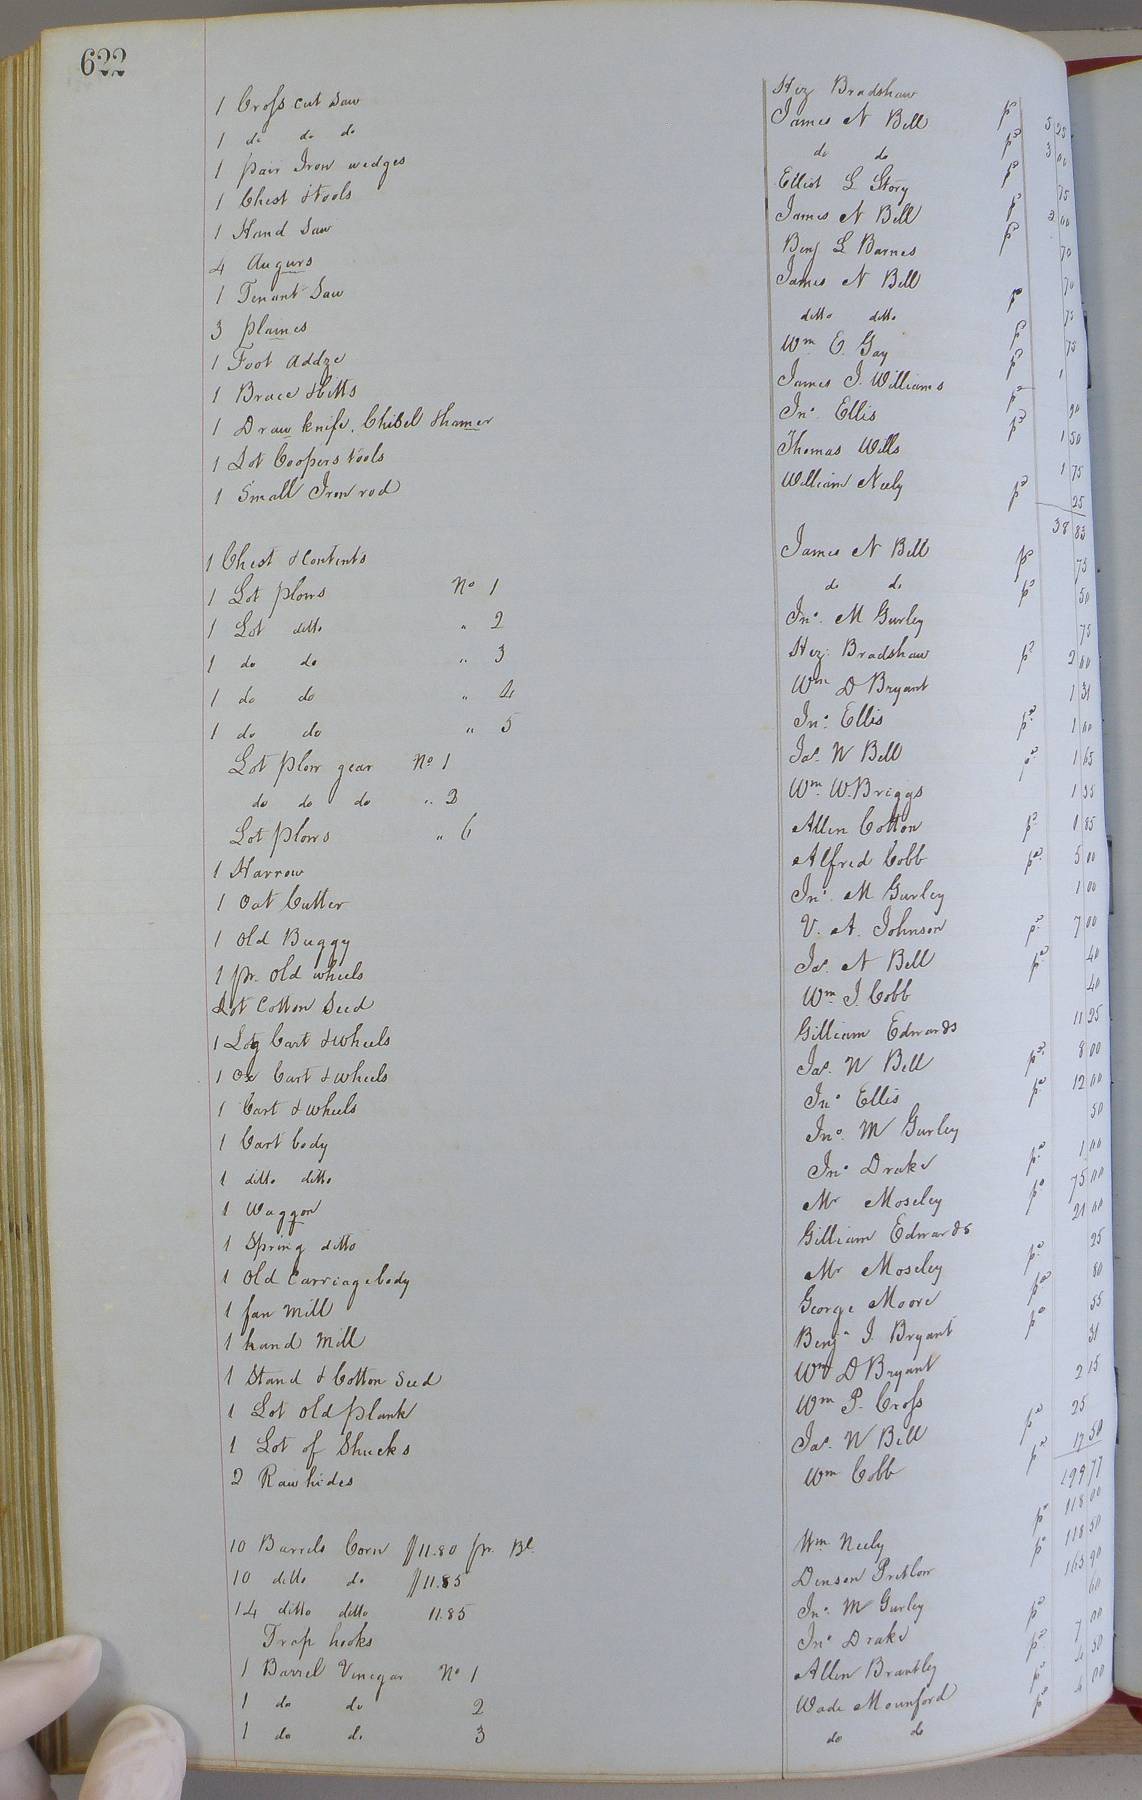 622
1 Cross cut Saw Hez Bradshaw pd 5 25
1 do do do James N Bell pd 3 00
1 pair Iron wedges do do pd 75
1 Chest & tools Elliot L Story pd 2 00
1 Hand Saw James N Bell pd 70
4 Augurs Benj L Barnes 70
1 Tenant Saw James N Bell pd 75
3 plaines ditto ditto pd 75
1 Foot Addze Wm E. Gay pd 1
1 Brace & bitts James J. Williams pd 90
1 Draw knife, Chisel & hamer Jno Ellis pd 1 50
1 Lot Coopers tools Thomas Wills 1 75
1 Small Iron rod William Neely pd 25
38 83
1 Chest & contents James N Bell pd 75
1 Lot plows No 1 do do pd 50
1 Lot ditto " 2 Jno. M Gurley 75
1 do do " 3 Hez. Bradshaw pd 2 00
1 do do " 4 Wm D Bryant 1 31
1 do do " 5 Jno. Ellis pd 1 00
Lot plow gear No 1 Jas. N Bell pd 1 65
do do do " 2 Wm. W. Briggs 1 35
Lot plows " 6 Allen Cotton pd 1 85
1 Harrow Alfred Cobb pd 5 00
1 Oat Cutter Jno. M. Gurley 1 00
1 Old Buggy V. A. Johnson pd 7 00
1 pr. old wheels Jas. N Bell pd 40
Lot Cotton Seed Wm J. Cobb 40
1 Log Cart & wheels Gilliam Edwards 11 25
1 Ox Cart & wheels Jas. N Bell pd 8 00
1 Cart & wheels Jno Ellis pd 12 00
1 Cart body Jno. M Gurley 50
1 ditto ditto Jno Drake pd 1 00
1 Waggon Mr Moseley pd 75 00
1 Spring ditto Gilliam Edwards 21 00
1 Old Carriage body Mr Moseley pd 25
1 fan mill George Moore pd 80
1 hand Mill Benj. J. Bryant pd 55
1 Stand & Cotton Seed Wm D Bryant 31
1 Lot old plank Wm P. Cross 2 15
1 Lot of Shucks Jas. N Bell pd 25
2 Raw hides Wm Cobb pd 17 50
199 77
10 Barrels Corn $11.80 pr. Bl. Wm Neely pd 118 00
10 ditto do $11.85 Denson Pretlow pd 118 50
14 ditto ditto 11.85 Jno. M Gurley 165 90
Trap hooks Jno Drake pd 60
1 Barrel Vinegar No 1 Allen Brantley pd 7 00
1 do do 2 Wade Mounford pd 4 50
1 do do 3 do do pd 4 00